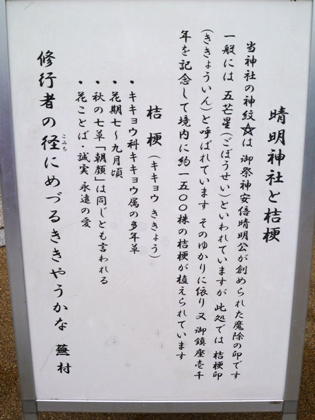 晴明神社と桔梗
当神社の神紋☆は御祭神安倍晴明公が創められた魔除の印です
一般には五芒星(ごぼうせい)といわれていますが此処では桔梗印
(ききょういん)と呼ばれています そのゆかりに依り又御鎮座壱千
年を記念して境内に約一五〇〇株の桔梗が植えられています
桔梗(キキョウ ききょう)
・キキョウ科キキョウ属の多年草
・花期七~九月頃
・秋の七草「朝顔」は同じとも言われる
・花ことば・誠実・永遠の愛
修行者の径にめづるききやうかな 蕪村
こみち